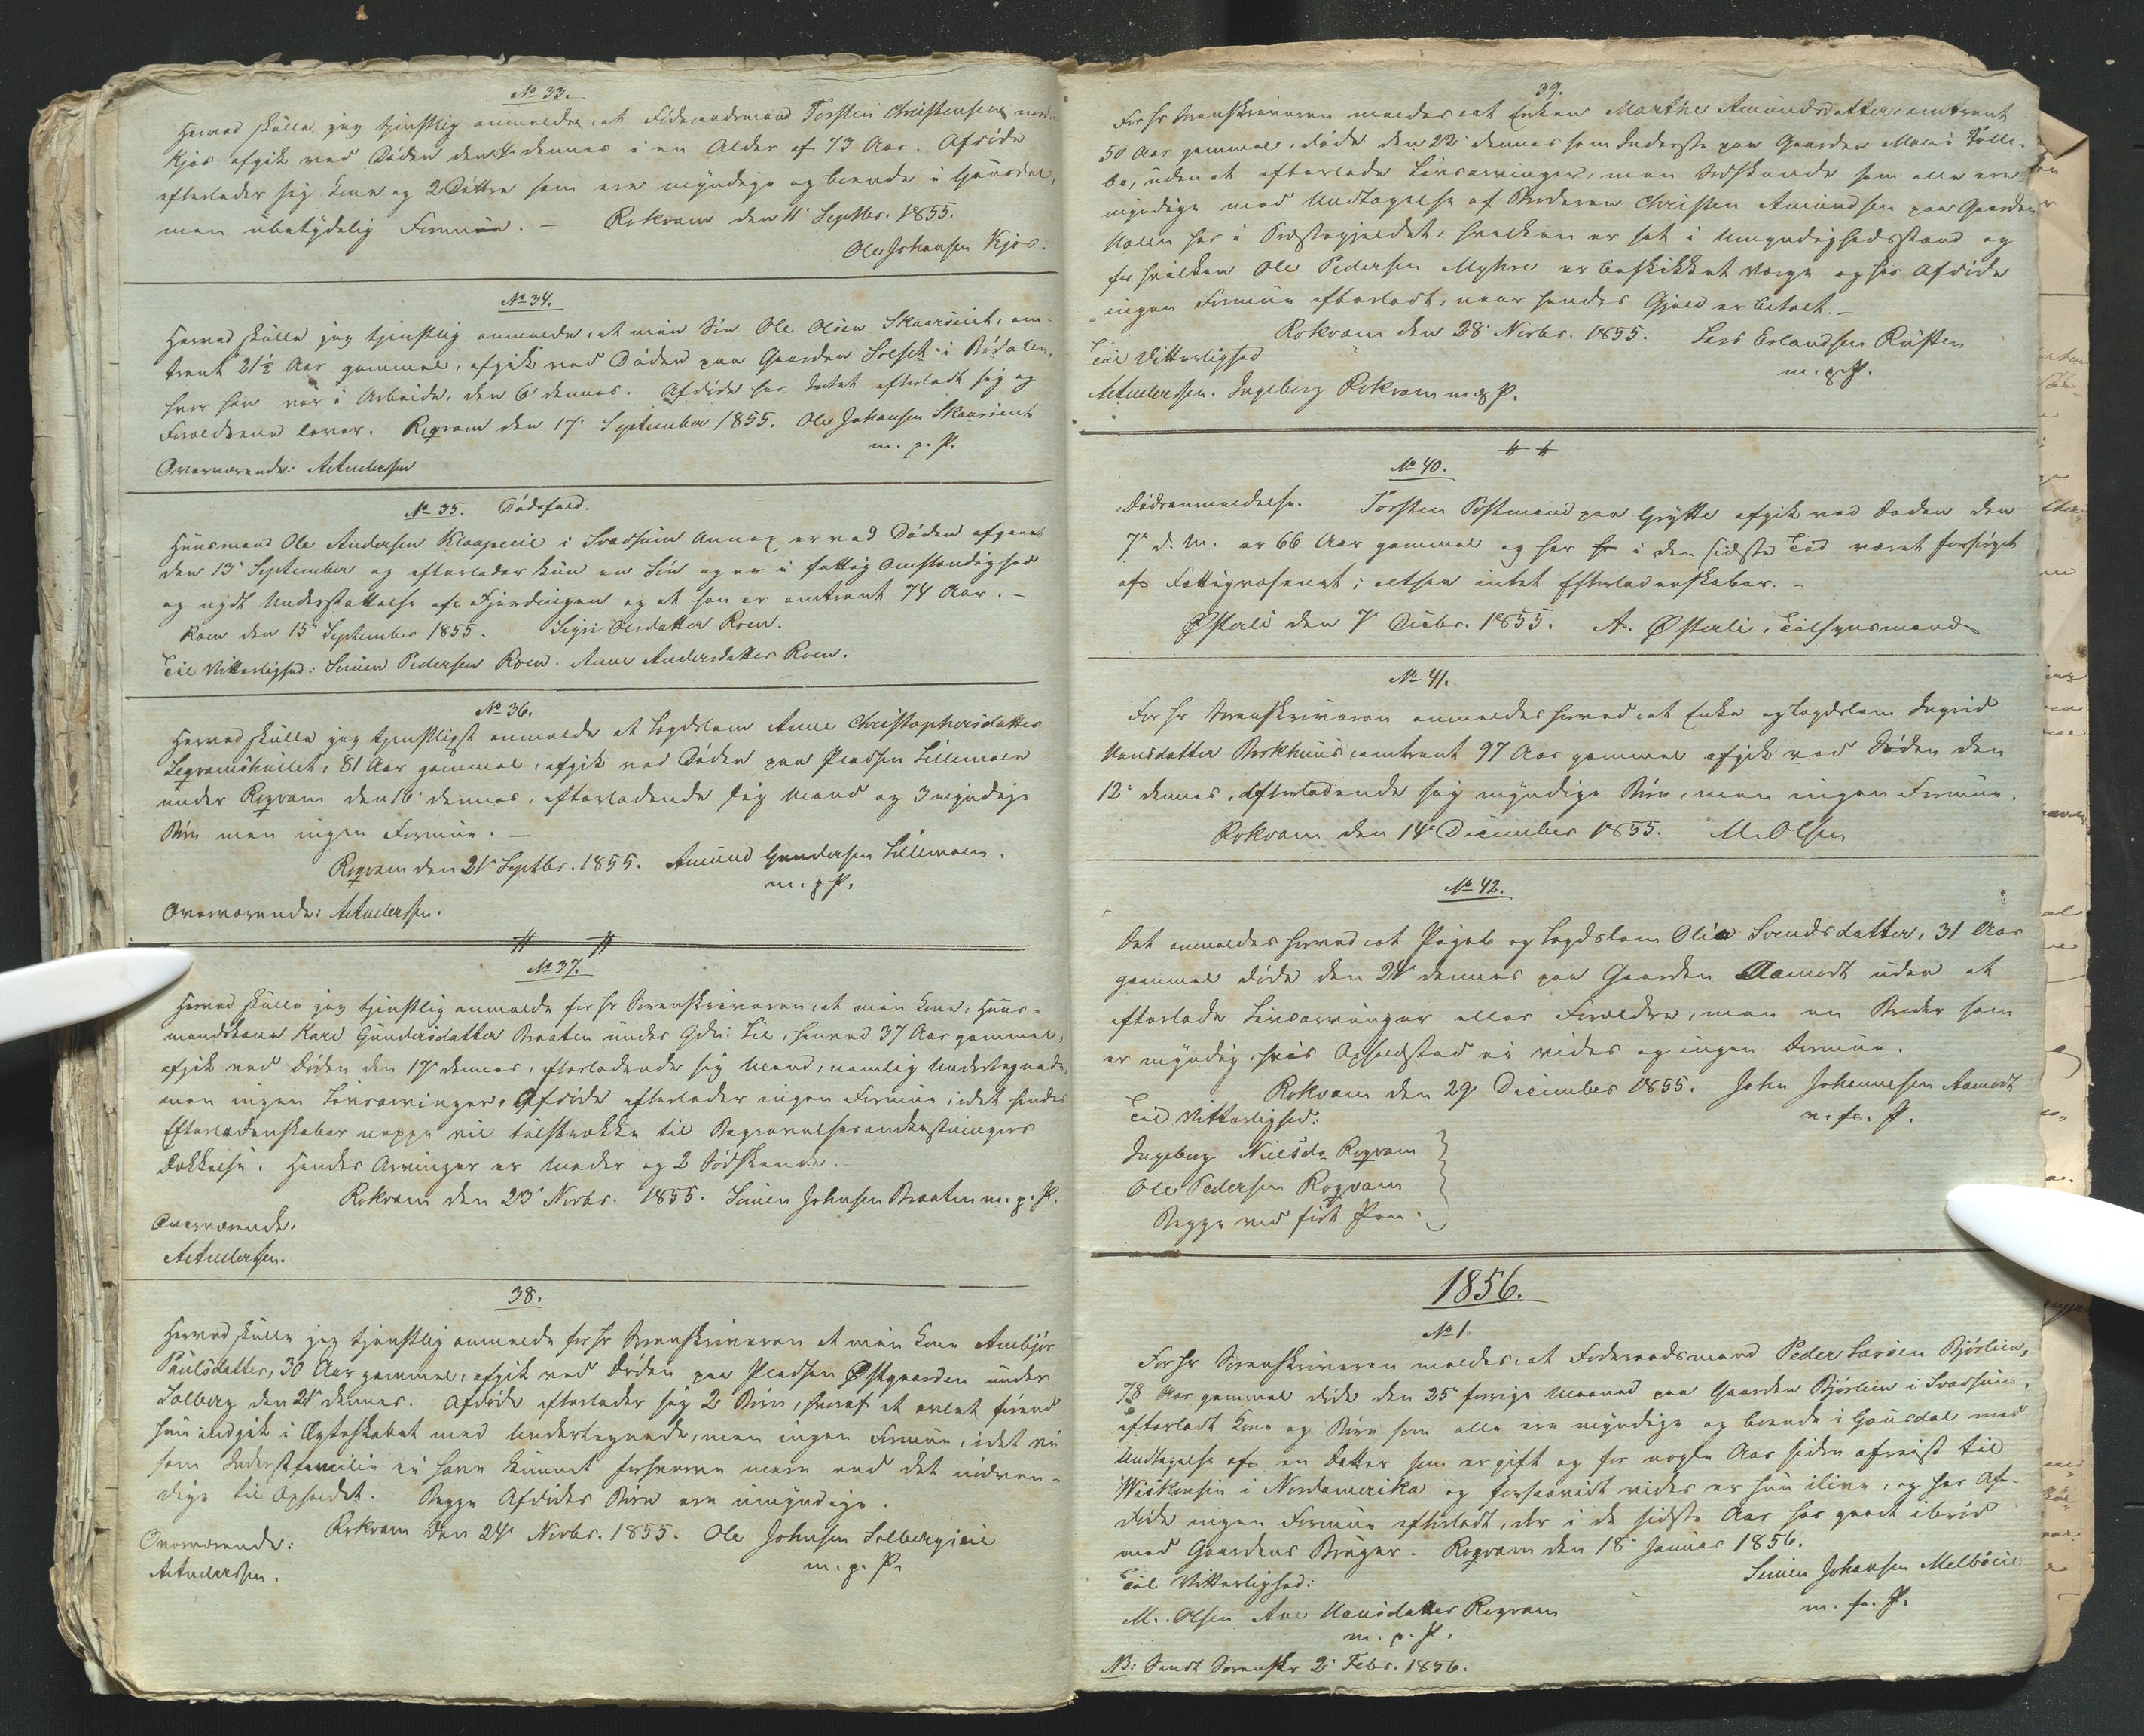 No 33.
Herved skulle jeg tjenstlig anmelde, at Føderaadsmand Torsten Christensen nedre
Kjos afgik ved Døden den dennes i en Alder af 73 Aar. Afdøde
efterlader sig Kone og 2 Døttre som ere myndige og boende i Gausdal,
men ubetydelig Formue. — Rokvam den 11' Septbr. 1855.
Ole Johansen Kjos.
No 34.
Herved skulle jeg tjenstlig anmelde, at min Søn Ole Olsen Skaarseiet, om-
trent 21½ Aar gammel, afgik ved Døden paa Gaarden Solset i
hvor han var i Arbeide, den 6' dennes. Afdøde har Intet efterladt sig og
Forældrene lever. Roqvam den 17' September 1855. Ole Johansen Skaarseiet
m. p. P.
Overværende: AAndersen
No 35. Dødsfald.
Huusmand Ole Andersen Klaapeeie i Svadsum Annex er ved Døden afgaaet
den 13' September og efterlader kun en Søn og er i fattig Omstændighed
og nydt Understøttelse af Fjerdingen og at han er omtrent 74 Aar. —
Roen den 15' September 1855. Sigri Olsdatter Roen.
Til Vitterlighed: Simen Pedersen Roen. Anne Andersdatter Roen.
No 36.
Herved skulle jeg tjenstligst anmelde at Lægdslem Anne Christophersdatter
Segramshullet, 81 Aar gammel, afgik ved Døden paa Pladsen Lillemoen
under Roqvam den 16' dennes, efterladende sig Mand og 3 myndige
Børn men ingen Formue. —
Roqvam den 21' Septbr. 1855. Amund Gundersen Lillemoen.
m. p P.
Overværende: AAndersen.
No 37.
Herved skulle jeg tjenstlig anmelde for Hr Sorenskriveren, at min Kone, Huus-
mandskone Kari Gundersdatter Braaten under Gdn: Lie, henved 37 Aar gammel,
afgik ved Døden den 17' dennes, efterladende sig Mand, nemlig Undertegnede,
men ingen Livsarvinger. Afdøde efterlader ingen Formue, idet hendes
Efterladenskaber neppe vil tilstrække til Begravelsesomkostningers
Dækkelse. Hendes Arvinger er Moder og 2 Sødskende.
Rokvam den 23' Novbr. 1855. Simen Johnsen Braaten m. p. P.
Overværende.
AAndersen.
38.
Herved skulle jeg tjenstlig anmelde for Hr Sorenskriveren at min Kone Ambjør
Paulsdatter, 30 Aar gammel, afgik ved Døden paa Pladsen Østgaarden under
Solberg den 21' dennes. Afdøde efterlader sig 2 Børn, hvoraf et avlet førend
hun indgik i Ægteskabet med Undertegnede, men ingen Formue, idet vi
som Inderstfamilie ei have kunnet forhverve mere end det nødven-
dige til Ophold. Begge Afdødes Børn ere umyndige.
Rokvam den 24' Novbr. 1855. Ole Johnsen Solbergseie
m. p. P.
Overværende:
AAndersen.
39.
For Hr Sorenskriveren meldes, at Enken Marthe Amundsdatter, omtrent
50 Aar gammel, døde den 22' dennes som Inderste paa Gaarden Moen i Følle-
bo, uden at efterlade Livsarvinger, men Sødskende som alle ere
myndige med Undtagelse af Broderen Christen Amundsen paa Gaarden
Holen her i Præstegjeldet, hvilken er sat i Umyndighedsstand og
for hvilken Ole Pedersen Myhre er beskikket Værge og har Afdøde
ingen Formue efterladt, naar hendes Gjæld er betalt. —
Rokvam den 28' Novbr. 1855. Lars Erlandsen Rusten
m. p. P.
Til Vitterlighed
AAndersen. Ingeborg Rokvam m p P.
No 40.
Dødsanmeldelse. Torsten Postmand paa Grytte afgik ved Døden den
7' d. M. er 66 Aar gammel og har i den sidste Tid været forsørget
af Fattigvæsenet; altsaa intet Efterladenskaber. —
Østerli den 7' Decbr. 1855. A. Østerli, Tilsynsmand
No 41.
For Hr Sorenskriveren anmeldes herved, at Enke og Lægdslem Ingrid
Hansdatter Berkhuus, omtrent 97 Aar gammel afgik ved Døden den
12' dennes, efterladende sig myndige Børn, men ingen Formue.
Rokvam den 14' December 1855. M. Olsen
No 42.
Det anmeldes herved, at Pige og Lægdslem Olia Svendsdatter, 31 Aar
gammel døde den 24' dennes paa Gaarden Aamodt uden at
efterlade Livsarvinger eller Forældre, men en Broder som
er myndig, hvis Opholdsted ei vides og ingen Formue.
Rokvam den 29' December 1855. John Johannesen Aamodt
m. p. P.
Til Vitterlighed:
Ingeborg Nielsdr Roqvam
Ole Pedersen Roqvam
Begge med ført Pen.
1856.
No 1.
For Hr Sorenskriveren meldes, at Føderaadsmand Peder Larsen Bjørlien,
78 Aar gammel døde den 25' forrige Maaned paa Gaarden Bjørlien i Svadsum,
efterladt Kone og Børn som alle ere myndige og boende i Gausdal med
Undtagelse af en Datter som er gift og for nogle Aar siden afreist til
Wiskonsin i Nordamerika og forsaavidt vides er hun ilive, og har Af-
døde ingen Formue efterladt, der i de sidste Aar har gaaet ibrød
med Gaardens Bruger. Roqvam den 18' Januar 1856.
Simen Johansen Melbøeie
m. p. P.
Til Vitterlighed:
M. Olsen Ane Hansdatter Roqvam
m. p. P.
NB: Sendt Sorenskr 2' Febr. 1856.